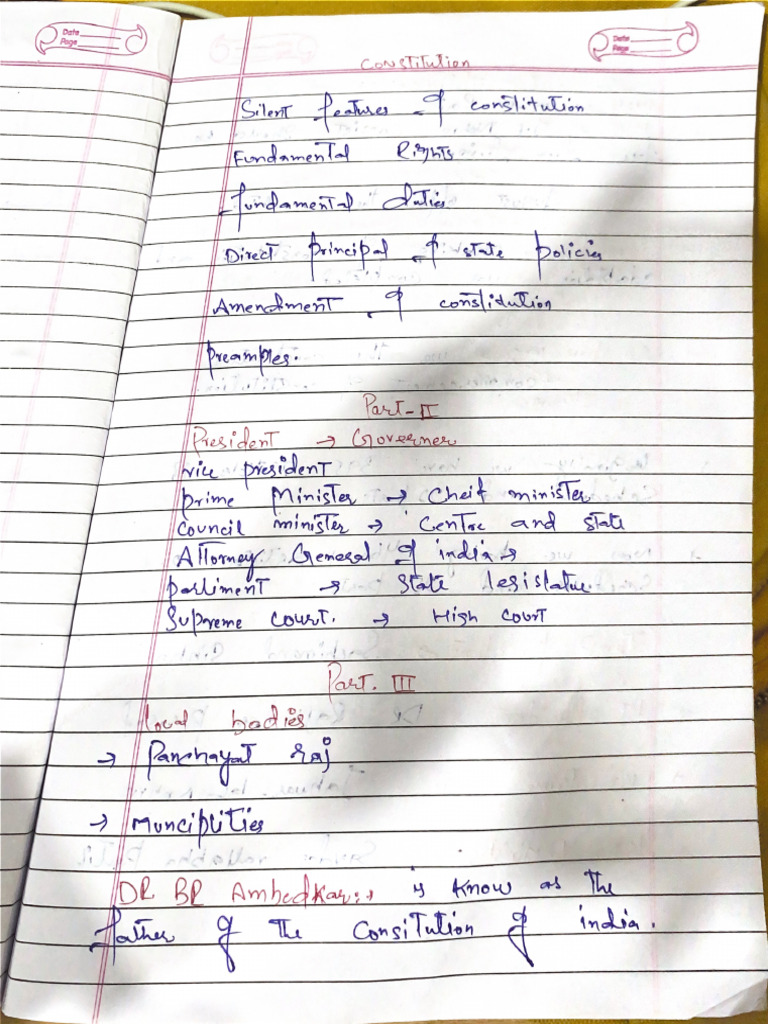 Date
Page
Date
Page
Constitution
Silent features of constitution
Fundamental Rights
fundamental duties
Direct principal of state policies
Amendment of constitution
Preamples.
Part-II
President → Governer
vice president
prime Minister → Cheif minister
council minister → Centre and state
Attorney General of india →
parliment → state legislatue.
Supreme court. → High court
Part. III
local bodies
→ Panchayat raj
→ Munciplities
DR BR Ambedkar:→ is know as the
father of the Consitution of india.